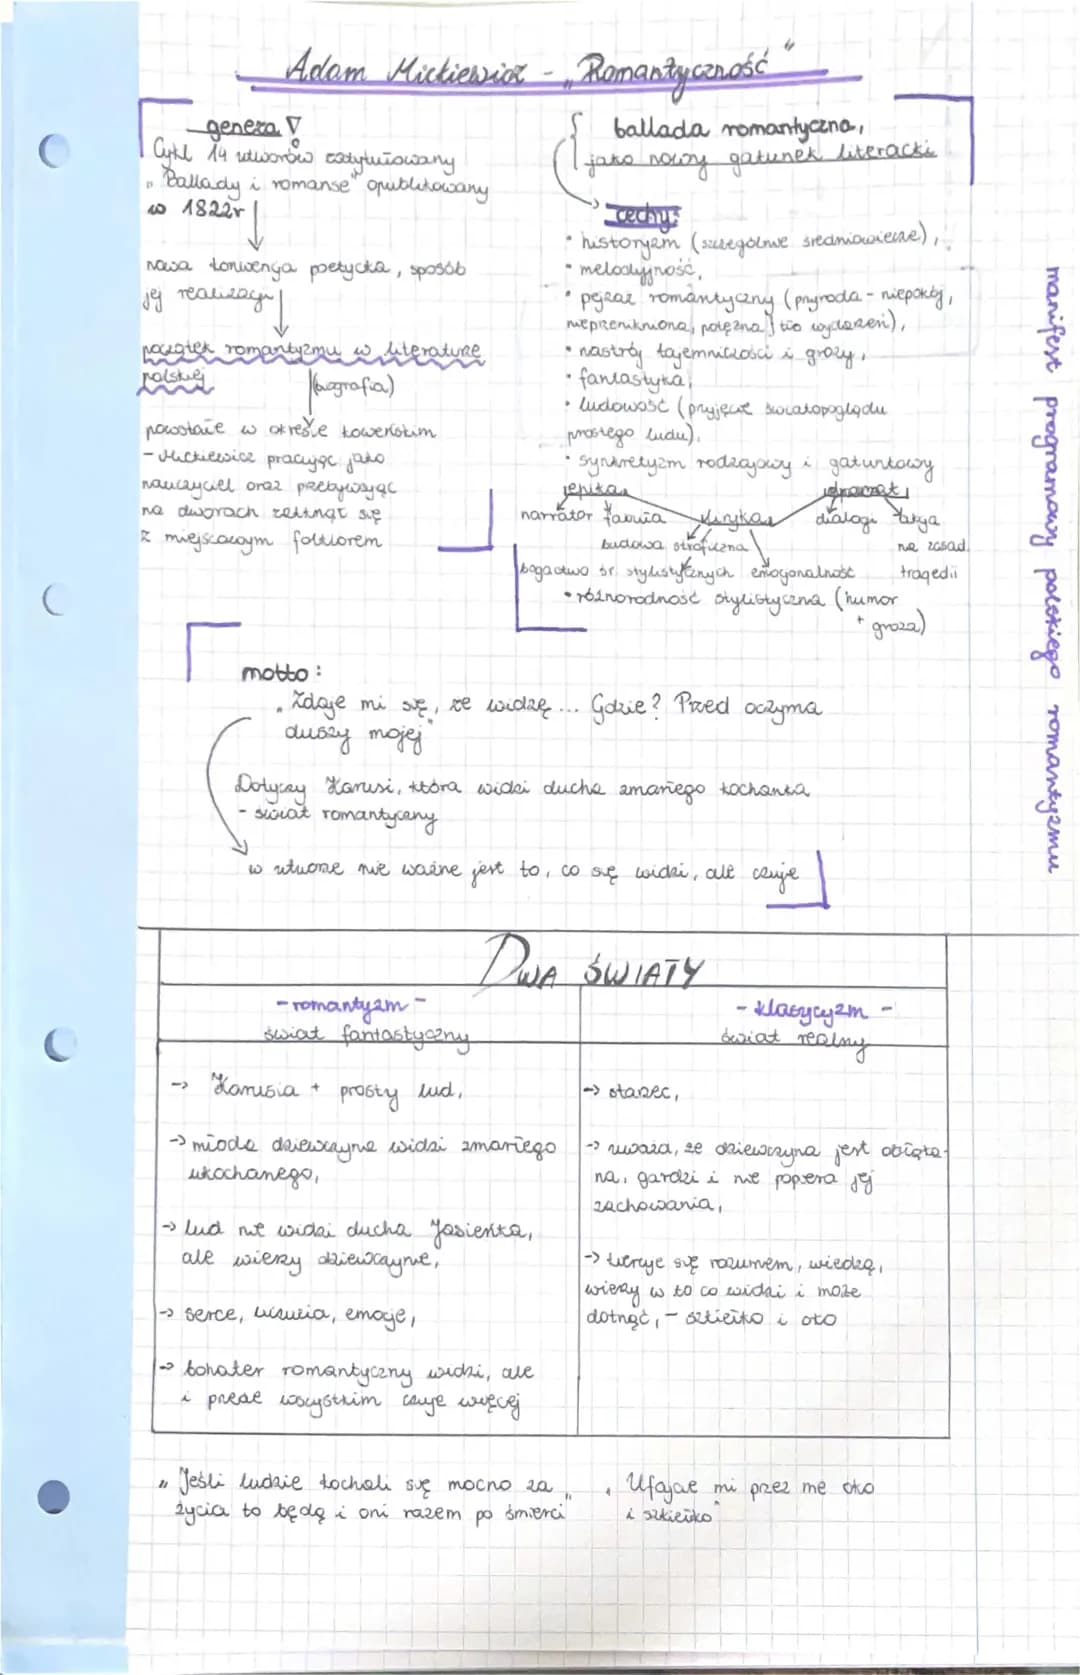 Adam Mickiewicz - „Romantyczność"
geneza
Cykl 14 utworów zatytułowany
„Ballady i romanse" opublikowany
w 1822r
nowa konwencja poetycka, sposób
jej realizacji
początek romantyzmu w literaturze
polskiej
(biografia)
powstanie w okresie kowieńskim
- Mickiewicz pracując jako
nauczyciel oraz przebywając
na dworach zetknął się
z miejscowym folklorem
ballada romantyczna,
jako nowy gatunek literacki
cechy:
• historyzm (szczególnie średniowiecze),
• melodyjność,
• pejzaż romantyczny (przyroda - niepokój,
nieprzenikniona, potężna] tło wydarzeń),
• nastrój tajemniczości i grozy,
• fantastyka,
• ludowość (przyjęcie światopoglądu
prostego ludu),
• synkretyzm rodzajowy i gatunkowy
epika
dramat
narrator fabuła liryka dialogi akcja
budowa stroficzna na zasad.
bogactwo śr. stylistycznych emocjonalność tragedii
• różnorodność stylistyczna (humor
+ groza)
manifest programowy polskiego romantyzmu
motto:
„Zdaje mi się, że widzę... Gdzie? Przed oczyma
duszy mojej"
Dotyczy Karusi, która widzi ducha zmarłego kochanka
- świat romantyczny
w utworze nie ważne jest to, co się widzi, ale czuje
DWA ŚWIATY
- romantyzm -
świat fantastyczny
- klasycyzm -
świat realny
-> Karusia + prosty lud,
-> młoda dziewczyna widzi zmarłego
ukochanego,
-> lud nie widzi ducha Jasieńka,
ale wierzy dziewczynie,
-> serce, uczucia, emocje,
-> bohater romantyczny widzi, ale
i przede wszystkim czuje więcej
-> starzec,
-> uważa, że dziewczyna jest obłąka-
na, gardzi i nie popiera jej
zachowania,
-> kieruje się rozumem, wiedzą,
wierzy w to co widzi i może
dotnąć, - szkiełko i oko
„Jeśli ludzie kochali się mocno za
życia to będą i oni razem po śmierci"
„Ufajcie mi przez me oko
i szkiełko"